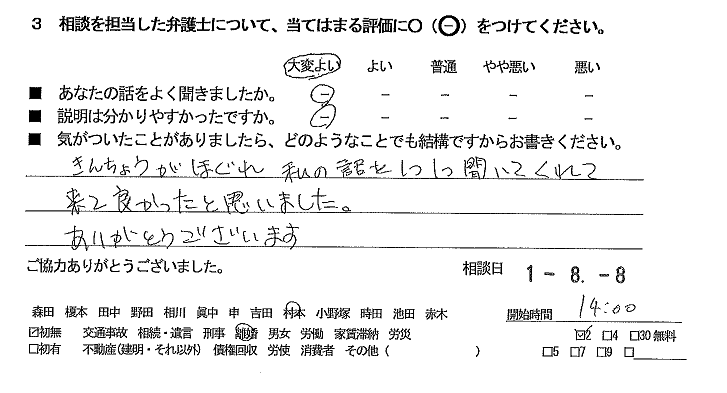 3 相談を担当した弁護士について、当てはまる評価に○（⊖）をつけてください。
大変よい よい 普通 やや悪い 悪い
■ あなたの話をよく聞きましたか。 － － － － －
■ 説明は分かりやすかったですか。 － － － － －
■ 気がついたことがありましたら、どのようなことでも結構ですからお書きください。
きんちょうがほぐれ 私の話を1つ1つ聞いてくれて
来て良かったと思いました。
ありがとうございます
ご協力ありがとうございました。 相談日 1-8.-8
森田 榎本 田中 野田 相川 眞中 申 吉田 村本 小野塚 時田 池田 赤木 開始時間 14:00
☑初無 交通事故 相続・遺言 刑事 離婚 男女 労働 家賃滞納 労災 ☑2 □4 □30 無料
□初有 不動産(建明・それ以外) 債権回収 労使 消費者 その他（ ） □5 □7 □9 □